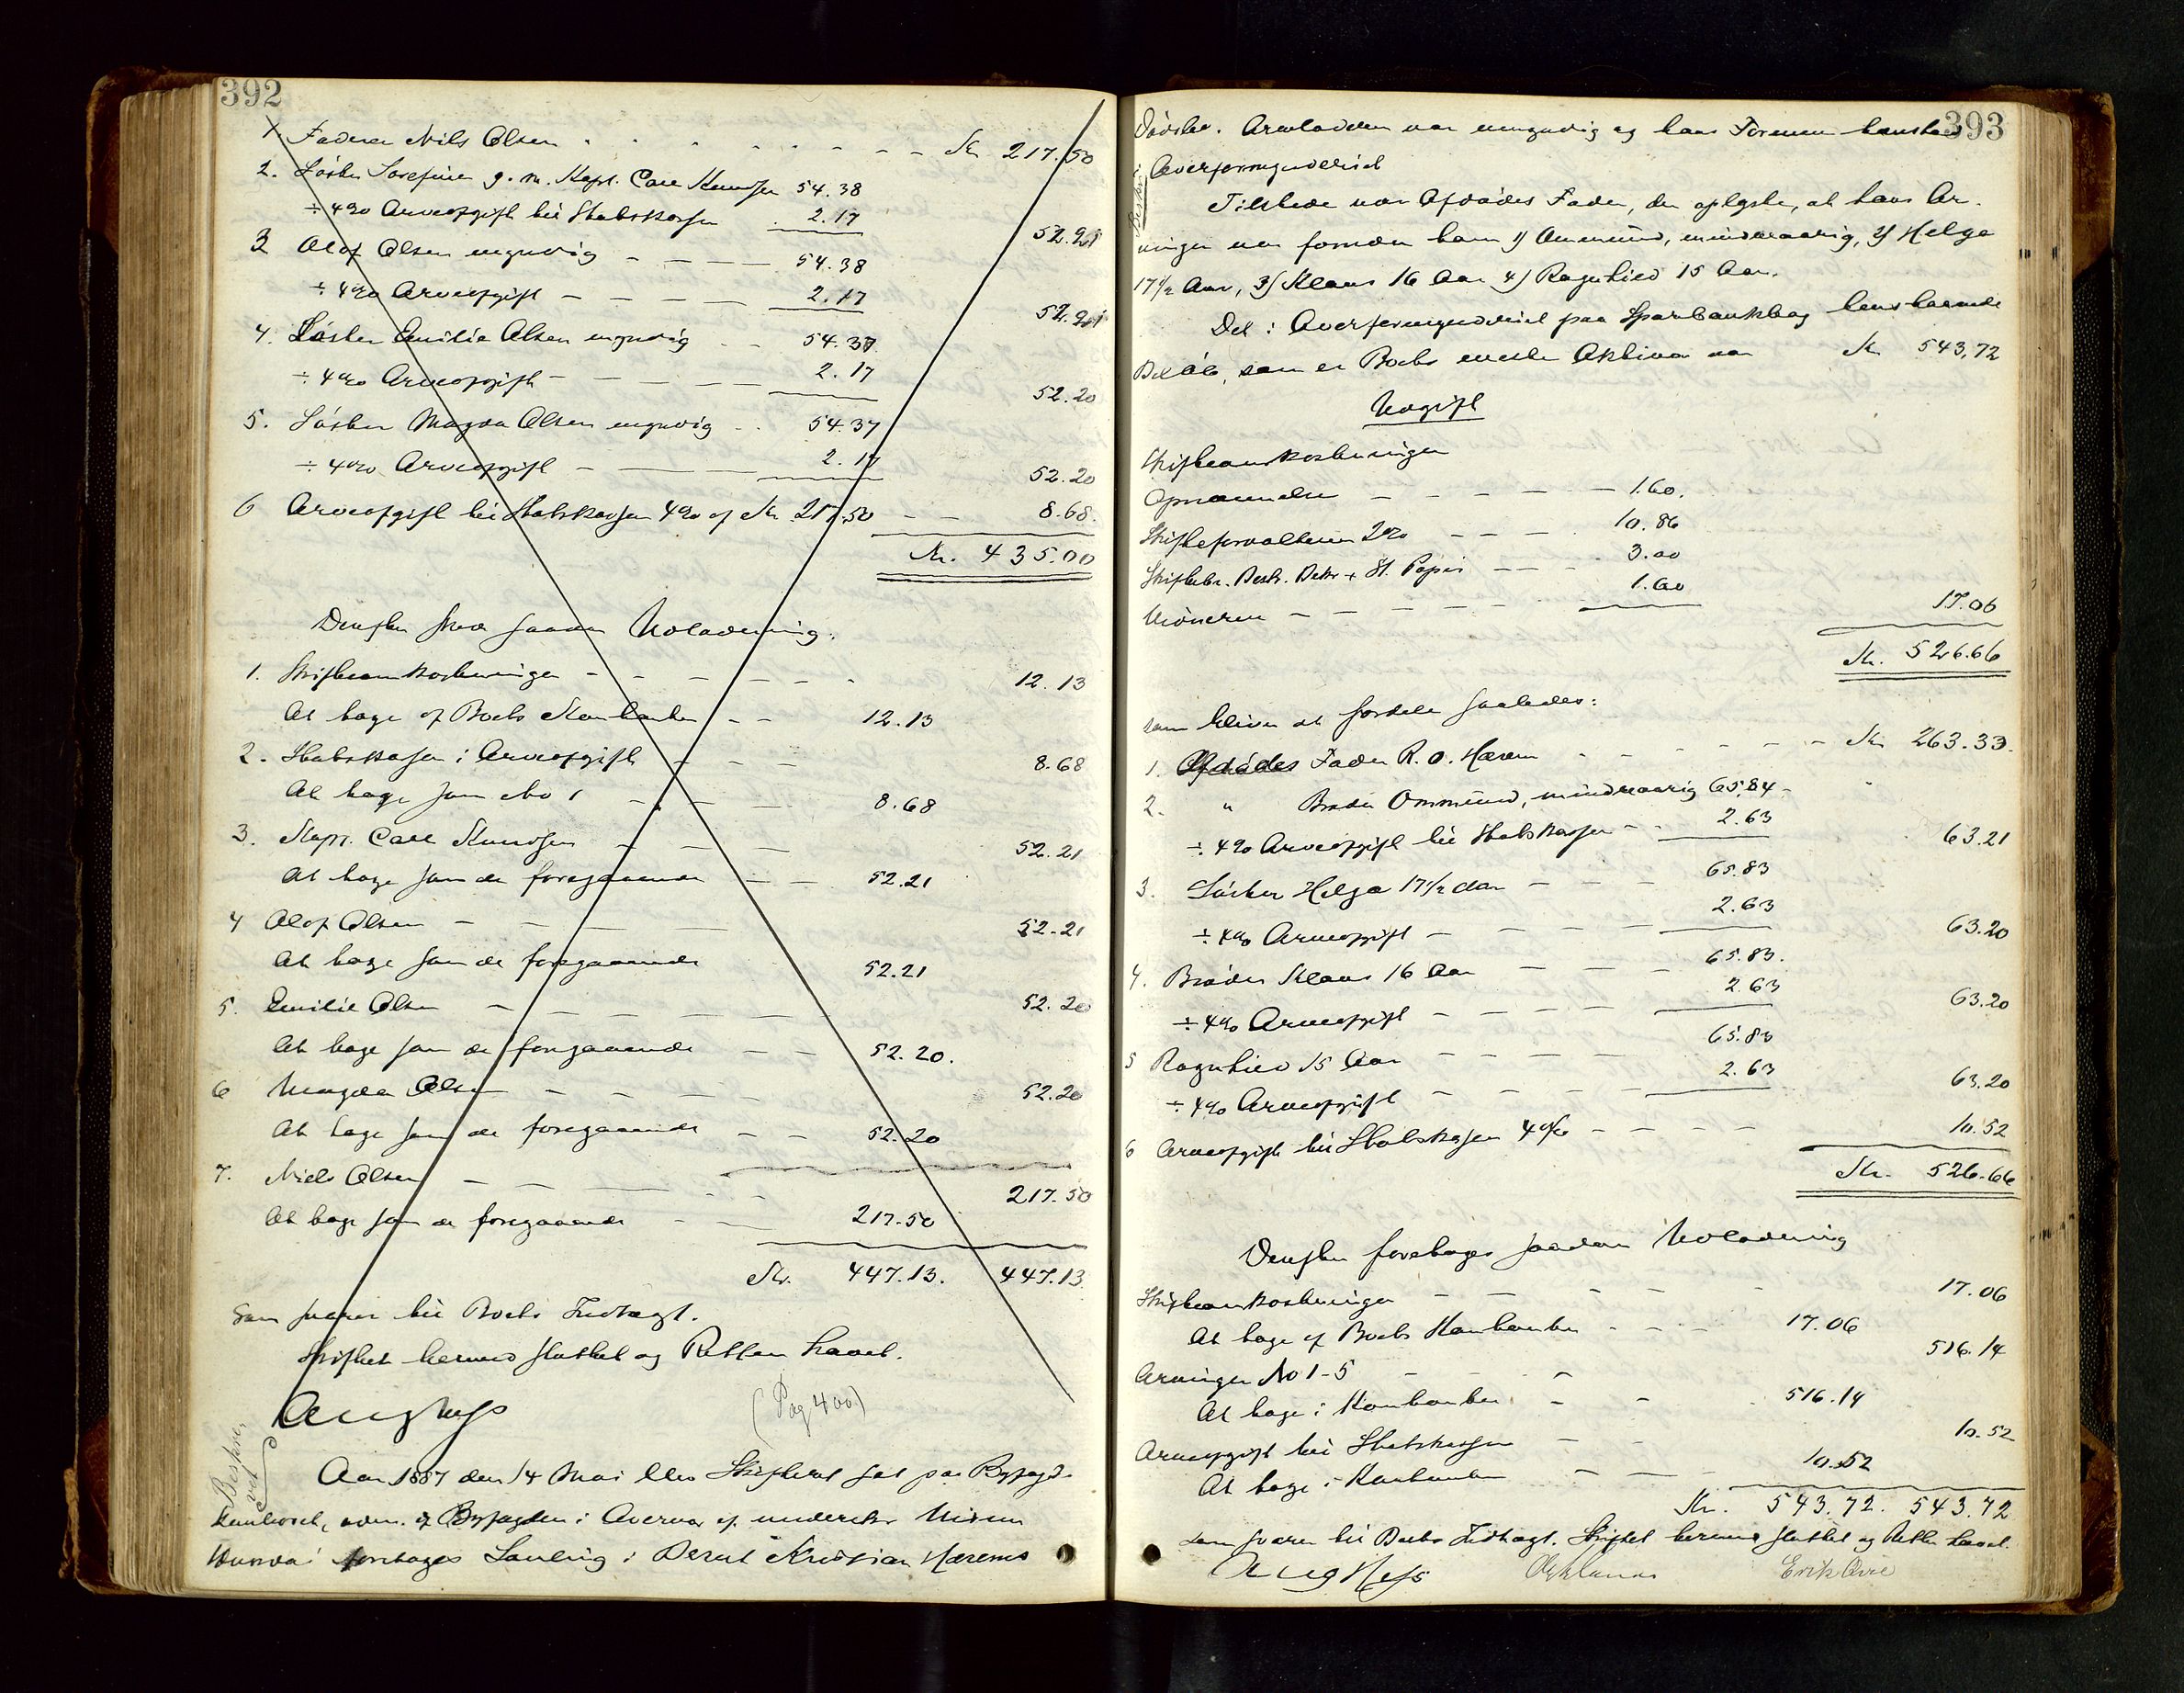 392
1. Faderen Nils Olsen - - - Kr. 217.50
2. Søster Josefine g. m. Kapt. Carl Knudsen 54.38
÷ 4% Arveafgift til Statskassen 2.17 52.21
3 Olaf Olsen umyndig - - - 54.38
÷ 4% Arveafgift - - - 2.17 52.21
4. Søster Emilie Olsen umyndig - - 54.37
÷ 4% Arveafgift - - - 2.17 52.20
5. Søster Magda Olsen umyndig - - 54.37
÷ 4% Arveafgift - - - 2.17 52.20
6 Arveafgift til Statskassen 4% af Kr. 217.50 - - 8.68
Kr. 435.00
Derefter skede saadan Udlodning:
1. Skifteomkostninger - - - 12.13
At tage af Boets Kontanter - - 12.13
2. Statskassen i Arveafgift - - - 8.68
At tage som No 1 - - - 8.68
3. Kapt. Carl Knudsen - - - 52.21
At tage som de foregaaende - - 52.21
4 Olaf Olsen - - - 52.21
At tage som de foregaaende 52.21
5. Emilie Olsen - - - 52.20
At tage som de foregaaende - - 52.20.
6 Magda Olsen - - - 52.20
At tage som de foregaaende - - 52.20
7. Niels Olsen - - - 217.50
At tage som de foregaaende - - 217.50
Kr. 447.13. 447.13
som svarer til Boets Indtægt.
Skiftet hermed sluttet og Retten hævet.
Aug Hess
(Pag 400)
Beskre-
vet
Aar 1887 den 14 Mai blev Skifteret sat paa Byfogd-
kontoret, adm. af Byfogden i Overvær af underskr. Vidner
Hvorda foretoges Samling i Dødsbo Kristian Hærems
393
Dødsbo. Arveladeren var umyndig og hans Formue henstaar
i Overformynderiet
Beskr.
Tilstede var Afdødes Fader, der oplyste, at hans Ar-
vinger var foruden ham 1) Ommund, mindreaarig, 2) Helga
17½ Aar, 3) Klaus 16 Aar 4) Ragnhild 15 Aar.
Det i Overformynderiet paa Sparbankbog henstaaende
Beløb, som er Boets eneste Aktiva var Kr. 543,72
Udgift
Skifteomkostninger
Opnævnelse - - - 1.60.
Skifteforvalteren 2% - - - 10.86
Skiftebr. Beskr. Dekr + St. Papir - - - 3.00
Vidneren - - - 1.60 17.06
Kr. 526.66
som bliver at fordele saaledes:
1. Afdødes Fader R. O. Hærem - - - Kr. 263.33.
2. " Broder Ommund, mindreaarig 65.84
÷ 4% Arveafgift til Statskassen - - 2.63 63.21
3. Søster Helga 17½ Aar - - - 65.83
÷ 4% Arveafgift - - - 2.63 63.20
4. Broder Klaus 16 Aar - - - 65.83.
÷ 4% Arveafgift - - - 2.63 63.20
5 Ragnhild 15 Aar - - - 65.83
÷ 4% Arveafgift - - - 2.63 63.20
6 Arveafgift til Statskassen 4% - - - 10.52
Kr. 526.66
Derefter foretages saadan Udlodning
Skifteomkostninger - - - 17.06
At tage af Boets Kontanter - - - 17.06
Arvinger No 1-5 - - - 516.14
At tage i Kontanter - - 516.14
Arveafgift til Statskassen - - 10.52
At tage i Kontanter - - 10.52
Kr. 543.72. 543.72
som svarer til Boets Indtægt. Skiftet hermed sluttet og Retten hævet.
Aug Hess Erik Øvre